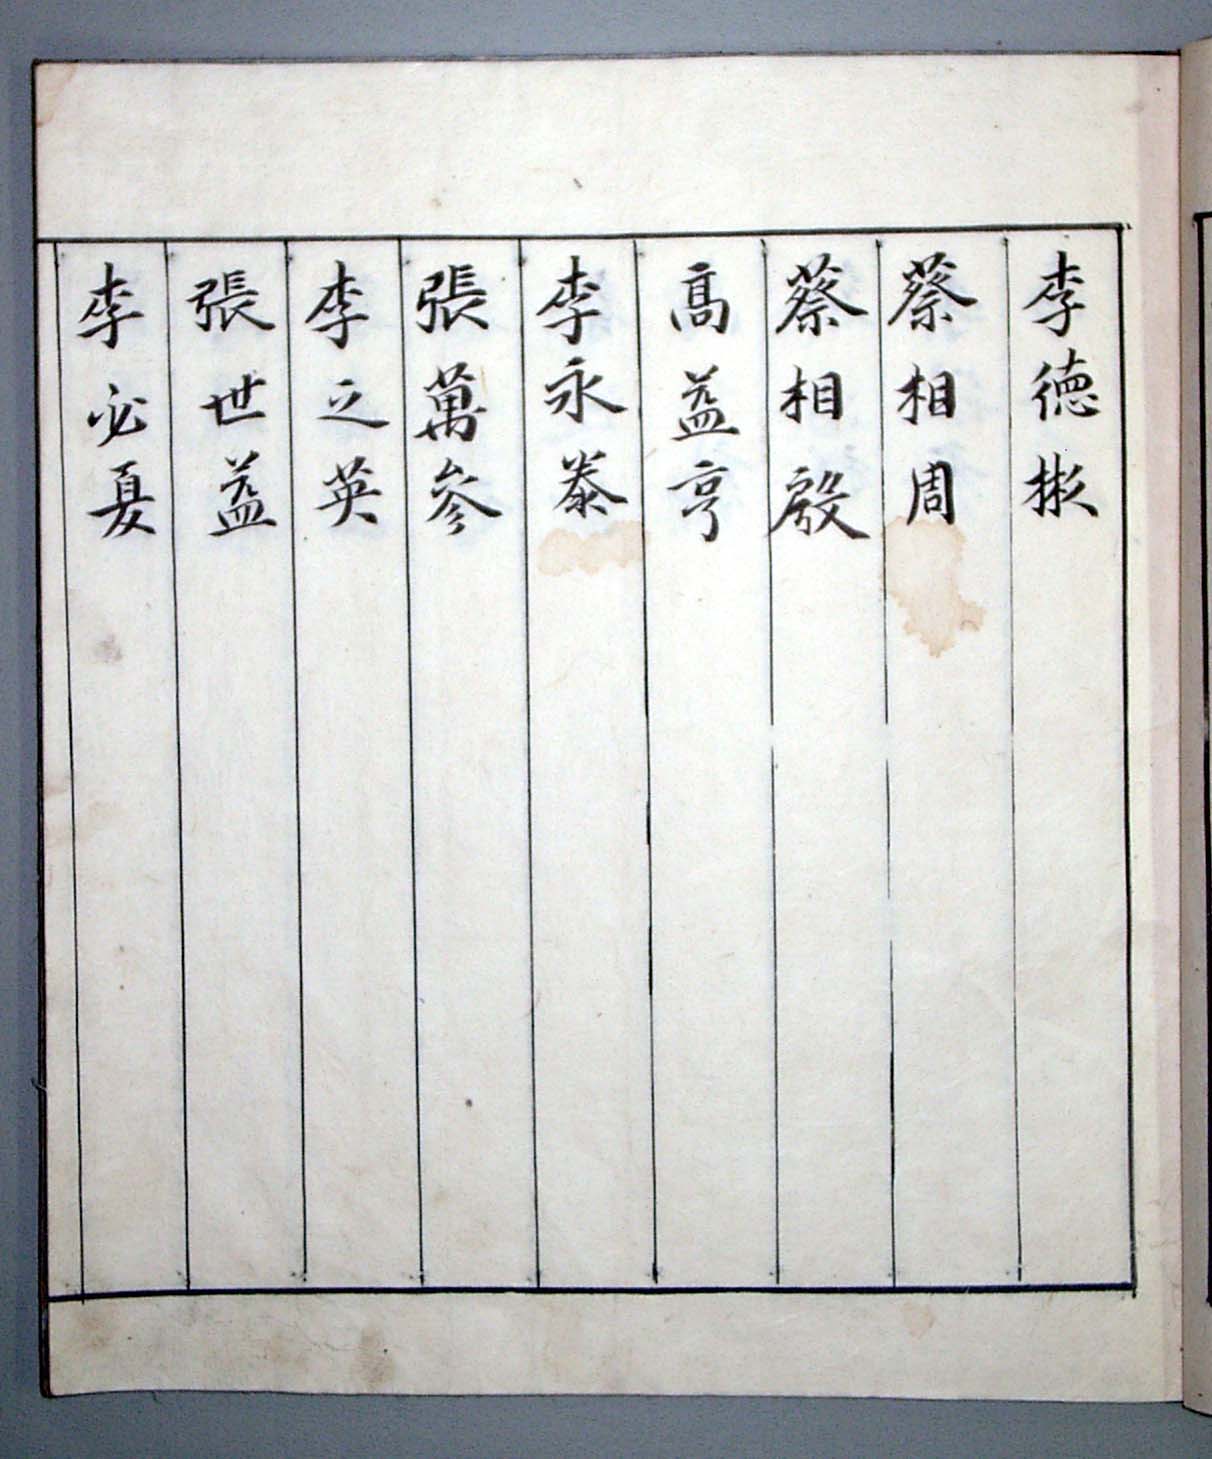 李德彬
蔡相周
蔡相殷
高益亨
李永泰
張萬參
李之英
張世益
李必夏